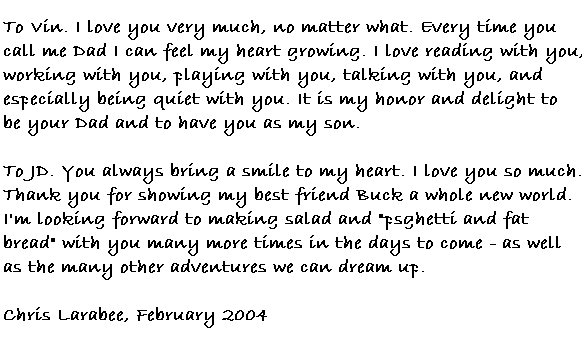 To Vin. I love you very much, no matter what. Every time you
call me Dad I can feel my heart growing. I love reading with you,
working with you, playing with you, talking with you, and
especially being quiet with you. It is my honor and delight to
be your Dad and to have you as my son.

To JD. You always bring a smile to my heart. I love you so much.
Thank you for showing my best friend Buck a whole new world.
I'm looking forward to making salad and "psghetti and fat
bread" with you many more times in the days to come - as well
as the many other adventures we can dream up.

Chris Larabee, February 2004